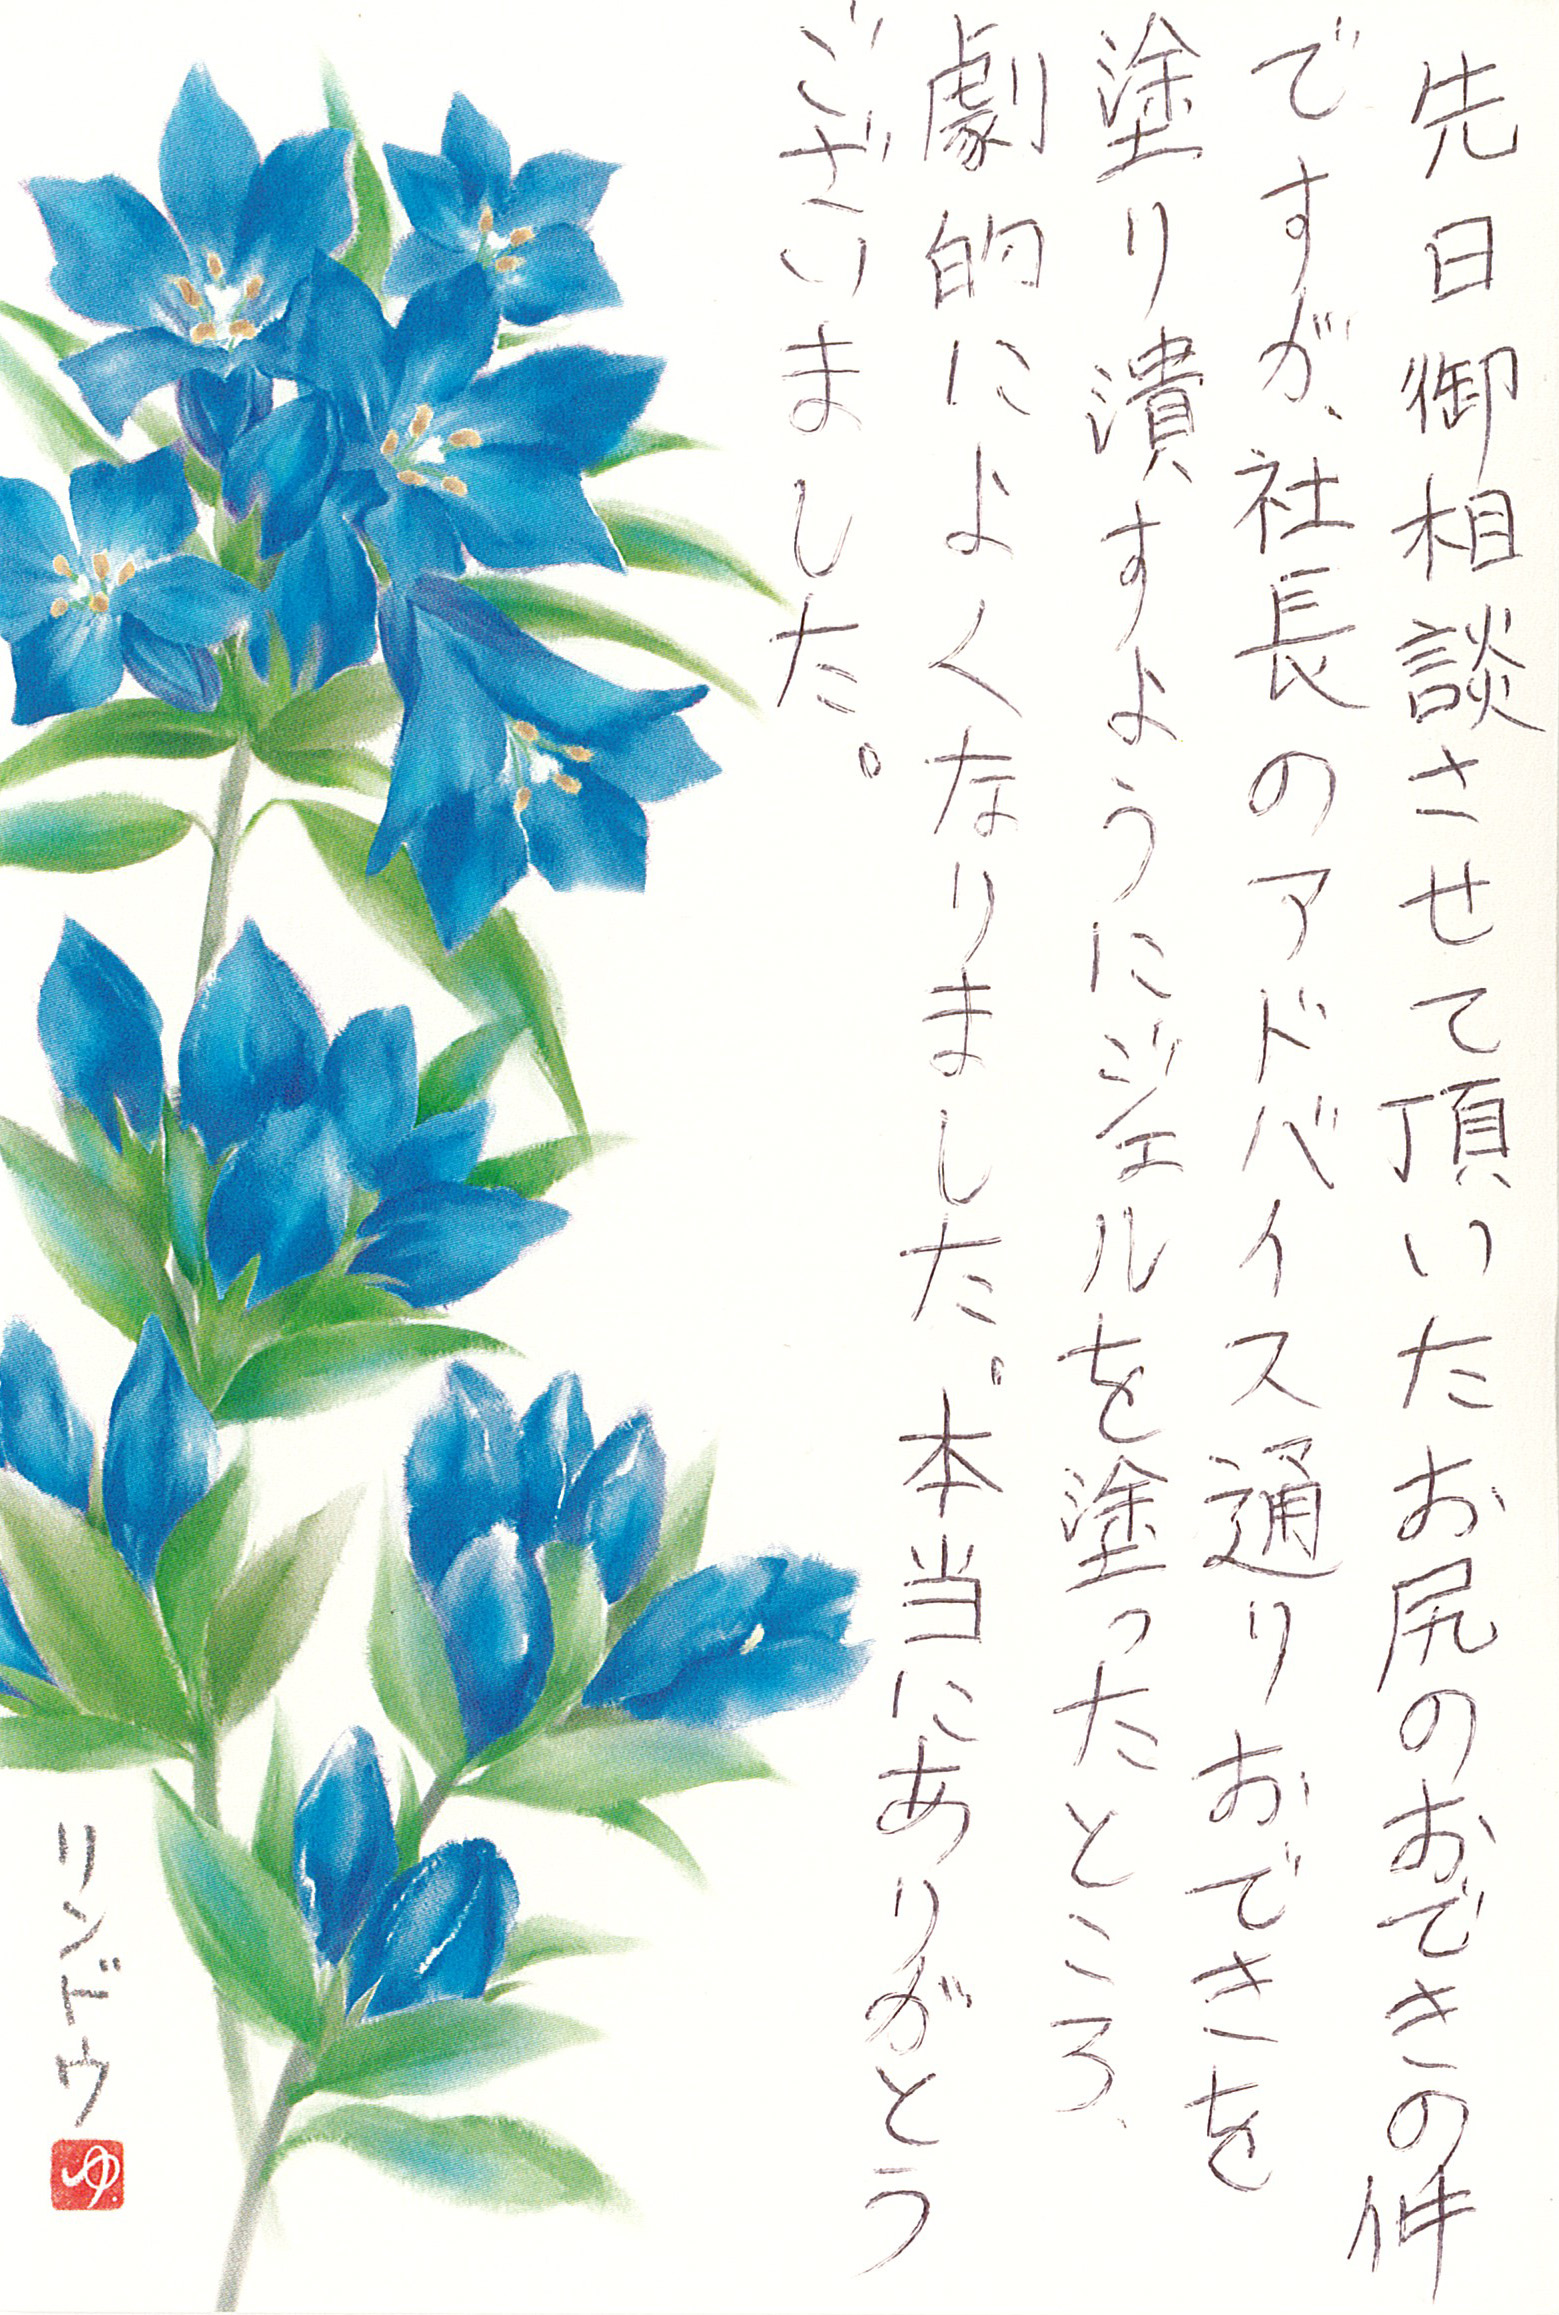 先日御相談させて頂いたお尻のおできの件
ですが、社長のアドバイス通りおできを
塗り潰すようにジェルを塗ったところ、
劇的によくなりました。本当にありがとう
ございました。
リンドウ
ゆ